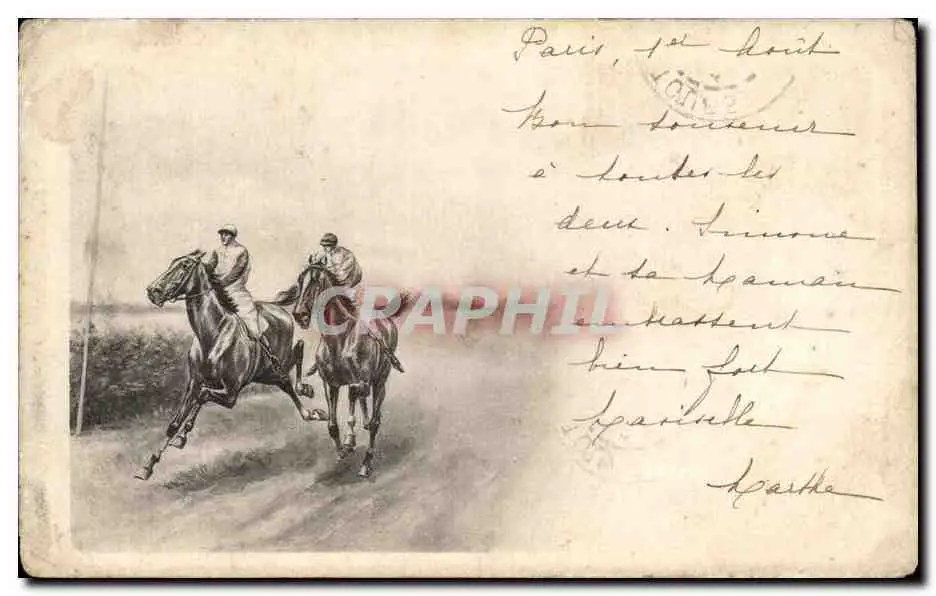 Paris, 1er Août
Bon souvenir
à toutes les
deux. Simone
et sa Maman
embrassent
bien fort
Marthe
CRAPHIL